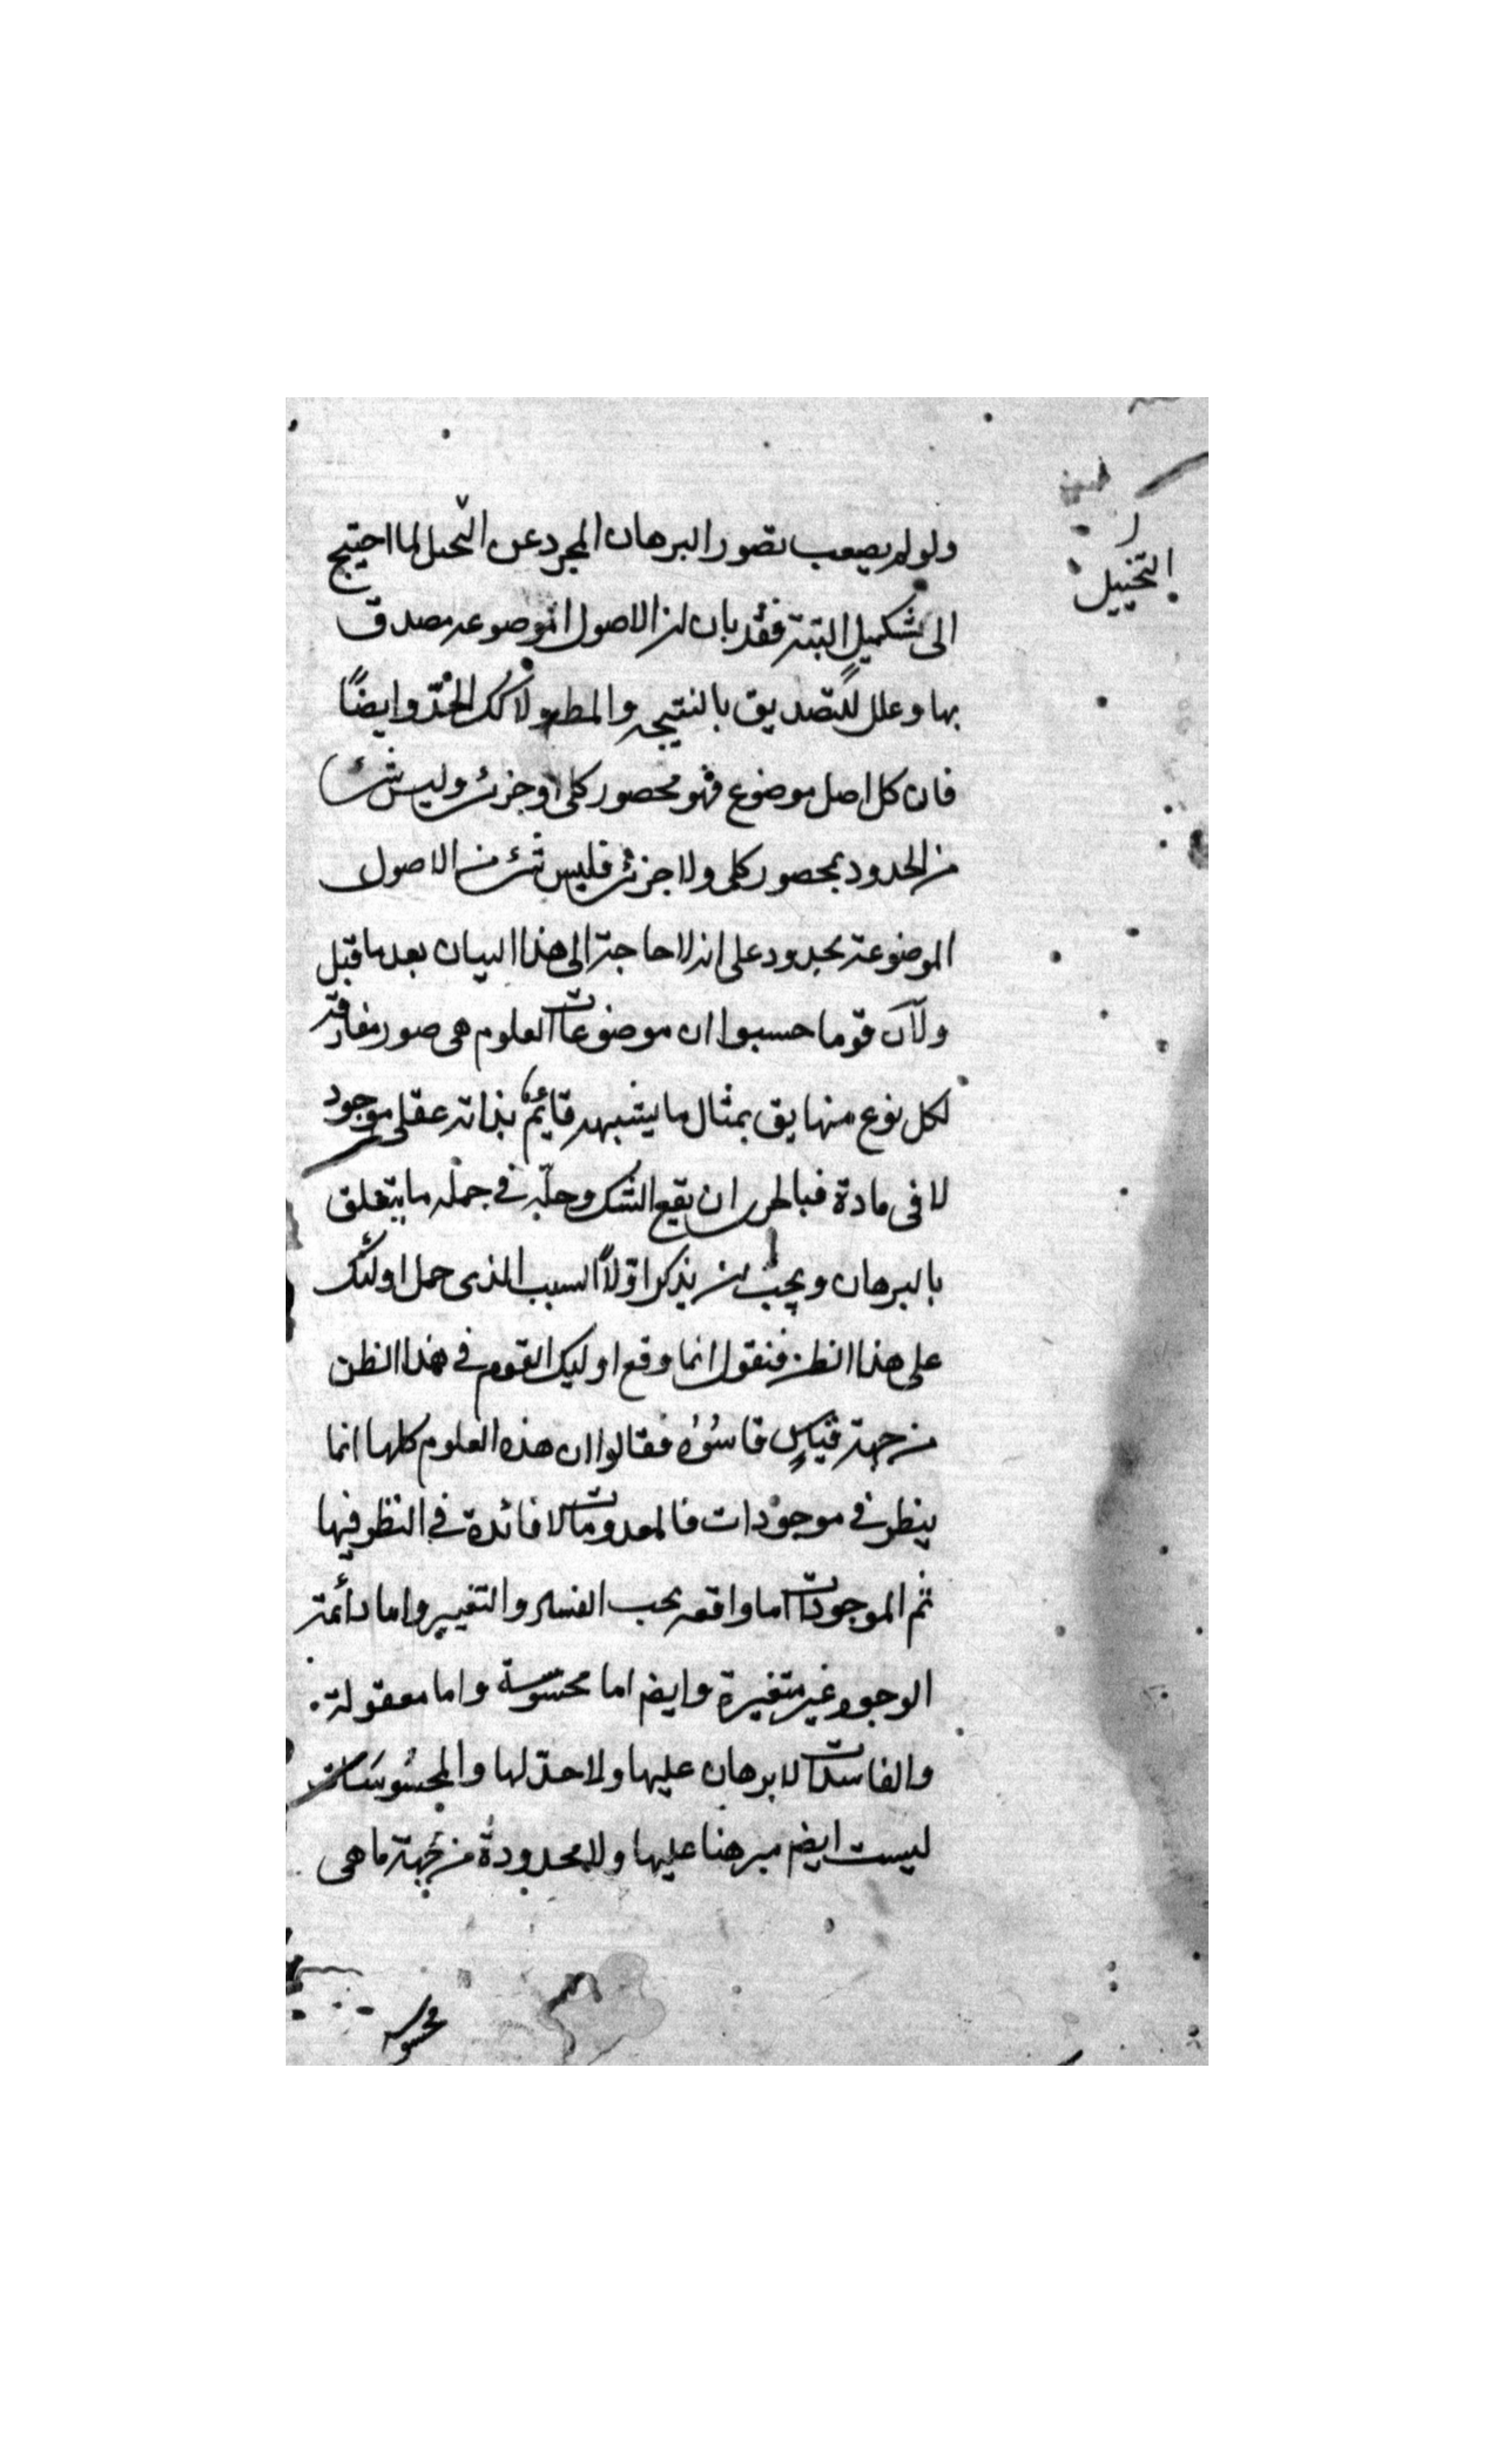 ولو لم يصعب تصور البرهان المجرد عن التحيل لما احتيج
التخييل
الى تشكيل البتة فقد بان ان الاصول الموضوعه مصدق
بها وعلل للتصديق بالنتيجه والمط ولا كك الحدّ وايضًا
فان كل اصل موضوع فهو محصور كلى او جزئ وليس شئ
من الحدود بمحصور كلى ولا جزئ فليس شئ من الاصول
الموضوعة بحدود على انه لا حاجة الى هذا البيان بعد ما قبل
ولآن قوما حسبوا ان موضوعات العلوم هى صور مفارقة
لكل نوع منها يق بمثال ما يشبهه قائم بذاته عقلى موجود
لا فى مادة فبالحرى ان يقع الشك وحلّه فى جمله ما يتعلق
بالبرهان ويجب ان يذكر اوّلًا السبب الذى حمل اولئك
على هذا الظن فنقول انما وقع اوليك القوم فى هذا الظن
من جهة قياسٍ قاسُوُه فقالوا ان هذه العلوم كلها انما
ينظر فى موجودات فالمعدومات لا فائدة فى النظر فيها
ثم الموجودات اما واقعه بحب الفساد والتغيير واما دائمة
الوجود غير متغيرة وايضم اما محسوسة واما معقولة
والفاسدات لا برهان عليها ولا حدّ لها والمحسُوسَات
ليست ايضم مبرهنا عليها ولا محدودة من جهة ما هى
محسوسه